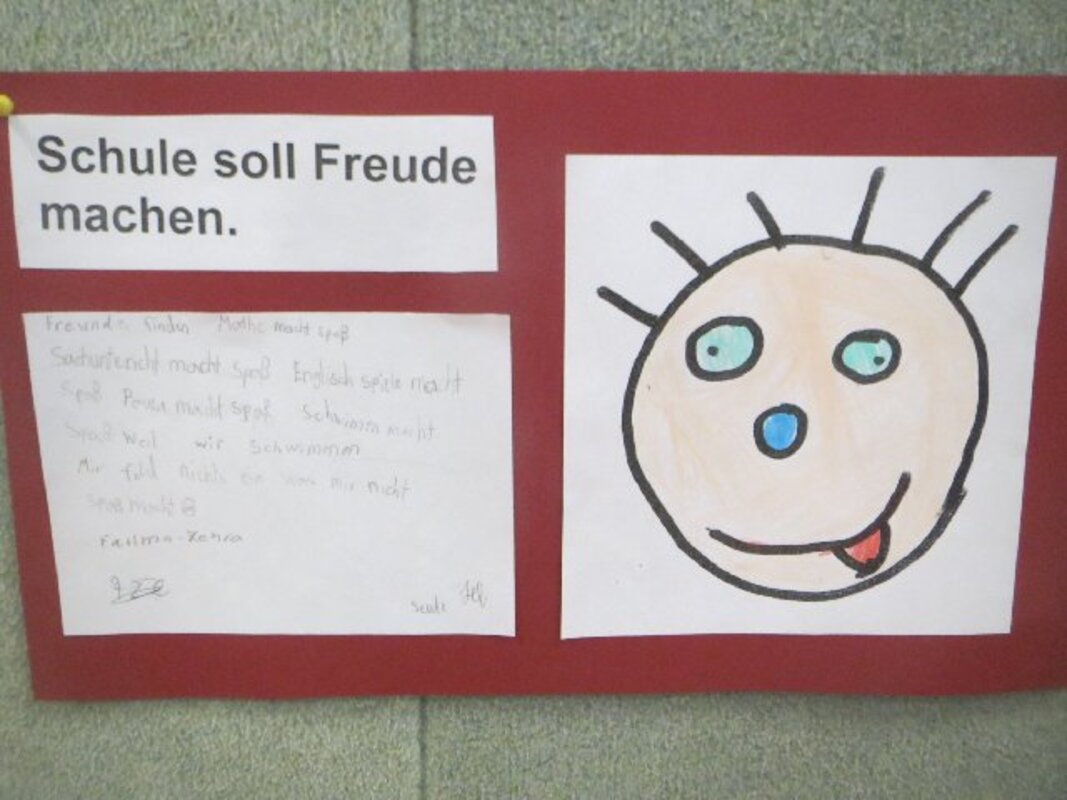 Schule soll Freude
machen.
Freunde finden Mathe macht spaß
Sachunterricht macht spaß Englisch spiele macht
Spaß Pausen macht spaß Schwimm macht
Spaß weil wir Schwimmen
Mir fält nichts ein was mir nicht
spaß macht
Fatima-Zehra